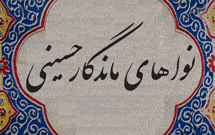 نواهای ماندگار حسینی